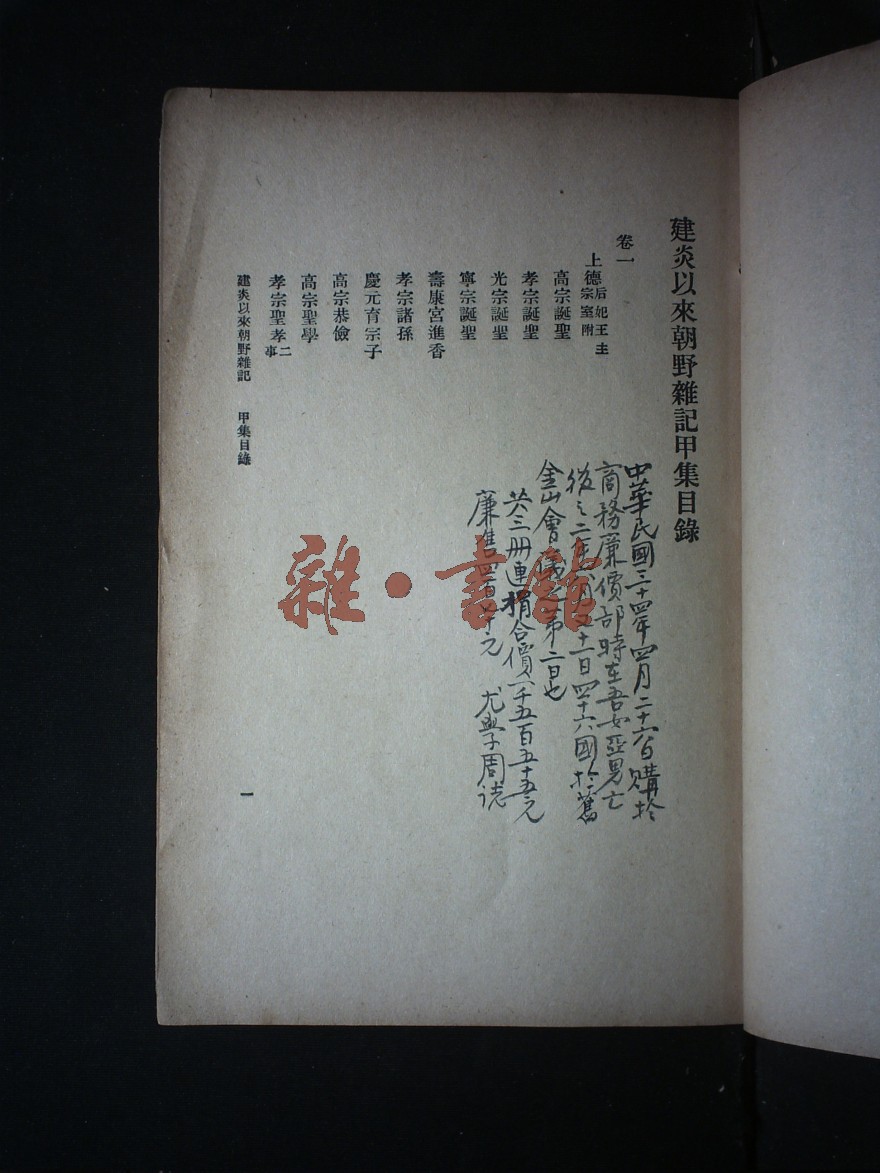 建炎以來朝野雜記甲集目錄
卷一
上德后妃王主宗室附
高宗誕聖
孝宗誕聖
光宗誕聖
寧宗誕聖
壽康宮進香
孝宗諸孫
慶元育宗子
高宗恭儉
高宗聖學
孝宗聖孝二事
建炎以來朝野雜記 甲集目錄
一
中華民國三十四年四月二十六日購於
商務廉價部時在吾女亞男亡
後之二年 月 十一日四十六國於舊
金山會議之第二日也
共三冊連捐合價一千五百五十五元
廉售 百 十元 尤學周誌
雜·書館